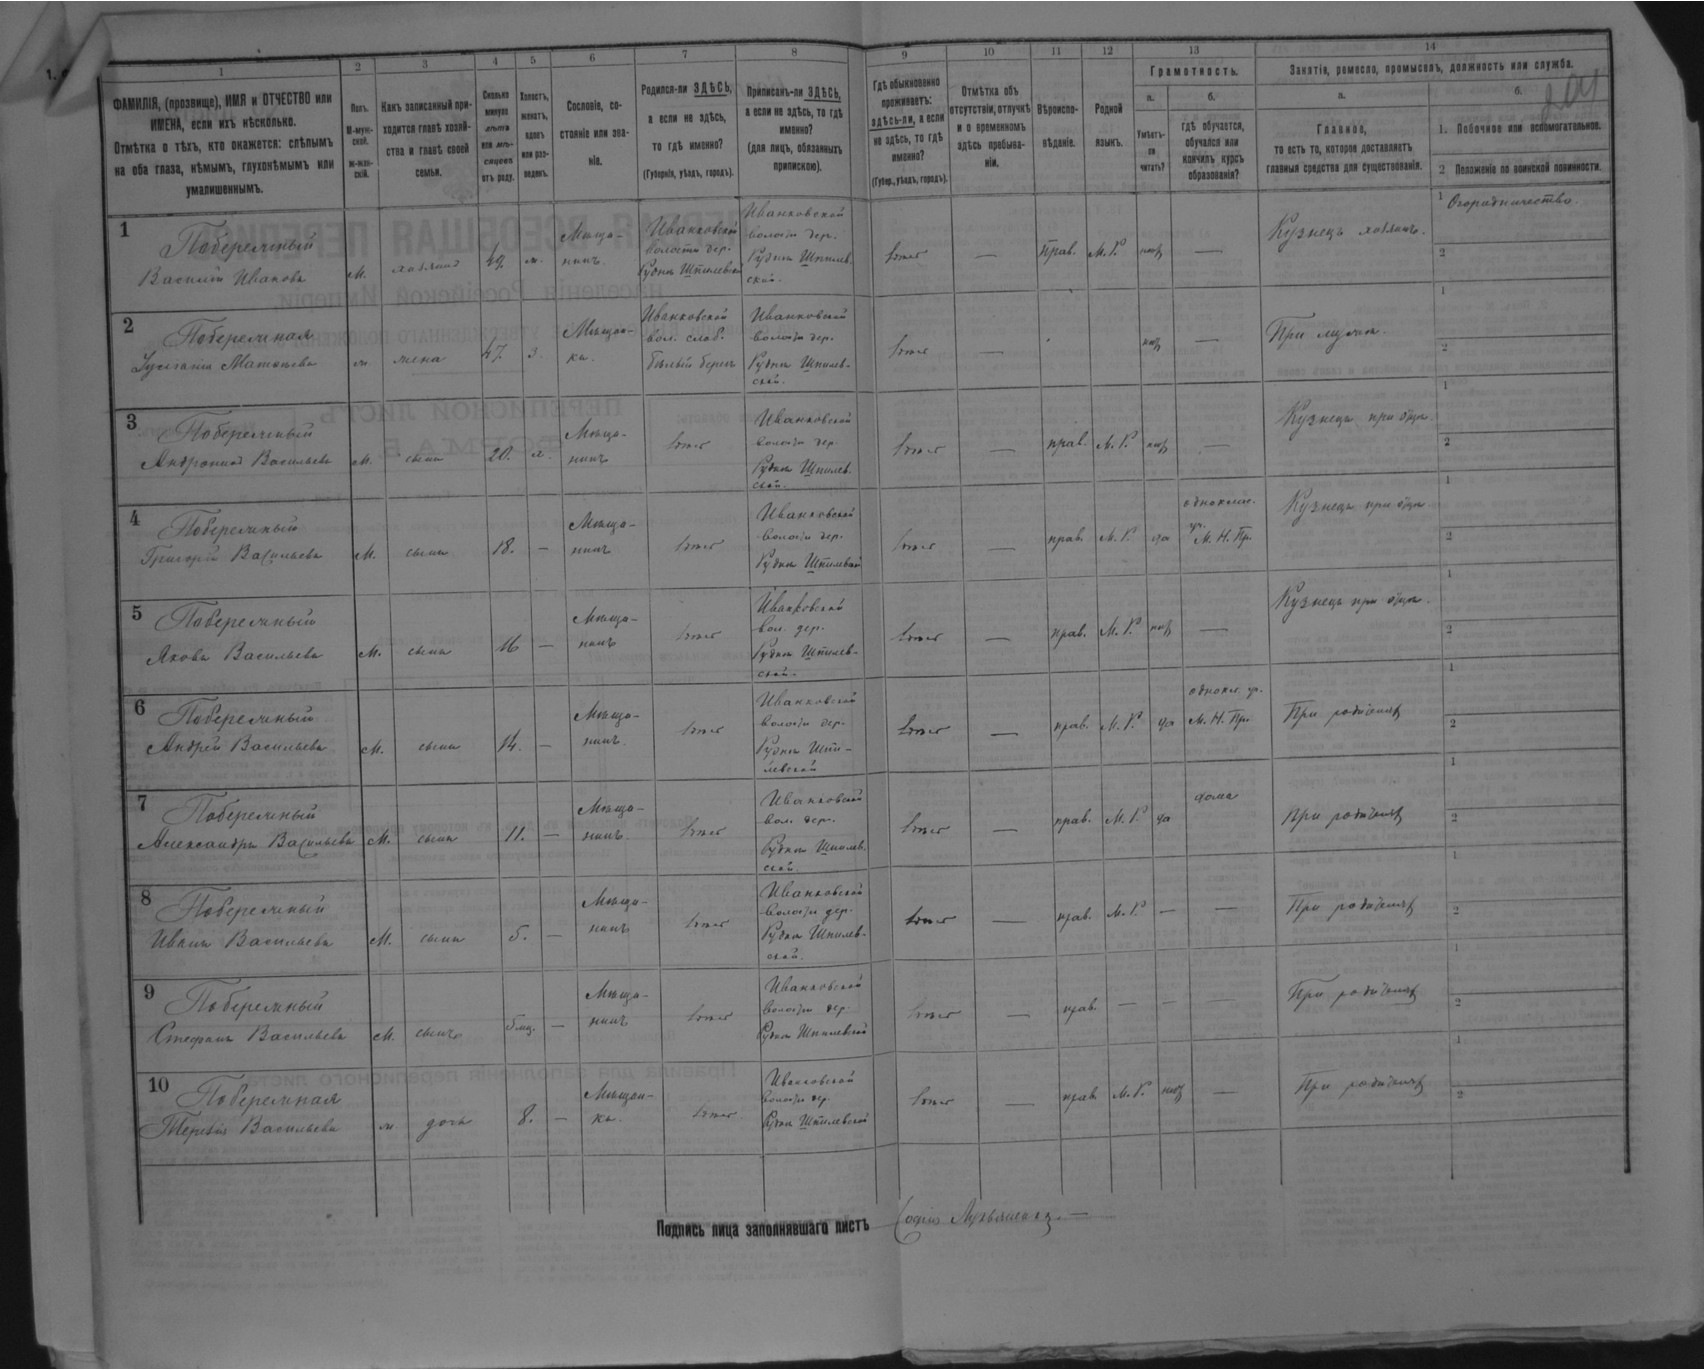 1 2 3 4 5 6 7 8 9 10 11 12 13 14
ФАМИЛІЯ, (прозвище), ИМЯ и ОТЧЕСТВО или
ИМЕНА, если ихъ нѣсколько.
Отмѣтка о тѣхъ, кто окажется: слѣпымъ
на оба глаза, нѣмымъ, глухонѣмымъ или
умалишеннымъ.
Полъ.
М-муж-
ской.
ж-жен-
скій.
Какъ записанный при-
ходится главѣ хозяй-
ства и главѣ своей
семьи.
Сколько
минуло
лѣтъ
или мѣ-
сяцевъ
отъ роду.
Холостъ,
женатъ,
вдовъ
или раз-
веденъ.
Сословіе, со-
стояніе или зва-
ніе.
Родился-ли ЗДѢСЬ,
а если не здѣсь,
то гдѣ именно?
(Губернія, уѣздъ, городъ).
Приписанъ-ли ЗДѢСЬ,
а если не здѣсь, то гдѣ
именно?
(для лицъ, обязанныхъ
припискою).
Гдѣ обыкновенно
проживаетъ:
здѣсь-ли, а если
не здѣсь, то гдѣ
именно?
(Губер., уѣздъ, городъ).
Отмѣтка объ
отсутствіи, отлучкѣ
и о временномъ
здѣсь пребыва-
ніи.
Вѣроиспо-
вѣданіе.
Родной
языкъ.
Грамотность.
а.
Умѣетъ-
ли
читать?
б.
гдѣ обучается,
обучался или
кончилъ курсъ
образованія?
Занятія, ремесло, промыселъ, должность или служба.
а.
Главное,
то есть то, которое доставляетъ
главныя средства для существованія.
б.
1. Побочное или вспомогательное.
2 Положеніе по воинской повинности.
1
Побережный
Василій Ивановъ
м. хозяинъ 49 ж.
Мѣща-
нинъ.
Иванковской
волости дер.
Рудня Шпилевская
Иванковской
волости дер.
Рудня Шпилев-
ской.
тоже — Прав. М. Р. нѣтъ —
Кузнецъ хозяинъ.
1 Огородничество.
2
2
Побережная
Матвѣева
ж жена 47. з.
Мѣщан-
ка.
Иванковской
вол. слоб.
Бѣлый берегъ
Иванковской
волости дер.
Рудня Шпилев-
ской.
тоже — нѣтъ —
При мужѣ.
1
2
3
Побережный
Андроникъ Васильевъ
м. сынъ 20. х.
Мѣща-
нинъ
тоже
Иванковской
волости дер.
Рудня Шпилев-
ской.
тоже — прав. М. Р. нѣтъ —
Кузнецъ при отцѣ.
1
2
4
Побережный
Григорій Васильевъ
м. сынъ 18. —
Мѣща-
нинъ
тоже
Иванковской
волости дер.
Рудня Шпилевской
тоже — прав. М. Р. да
одноклас.
уч.
М. Н. Пр.
Кузнецъ при отцѣ
1
2
5
Побережный
Яковъ Васильевъ
м. сынъ 16 —
Мѣща-
нинъ
тоже
Иванковской
вол. дер.
Рудня Шпилев-
ской.
тоже — прав. М. Р. нѣтъ —
Кузнецъ при отцѣ.
1
2
6
Побережный
Андрей Васильевъ
м. сынъ 14. —
Мѣща-
нинъ.
тоже
Иванковской
волости дер.
Рудня Шпи-
левской
тоже — прав. М. Р. да
однокл. уч.
М. Н. Пр.
При родителяхъ
1
2
7
Побережный
Александръ Васильевъ
м. сынъ 11. —
Мѣща-
нинъ
тоже
Иванковской
вол. дер.
Рудня Шпилев-
ской.
тоже — прав. М. Р. да дома
При родителяхъ
1
2
8
Побережный
Иванъ Васильевъ
м. сынъ 5. —
Мѣща-
нинъ
тоже
Иванковской
волости дер.
Рудня Шпилев-
ской.
тоже — прав. М. Р. — —
При родителяхъ
1
2
9
Побережный
Стефанъ Васильевъ
м. сынъ 5 мц. —
Мѣща-
нинъ
тоже
Иванковской
волости дер.
Рудня Шпилевской
тоже — прав. — — —
При родителяхъ
1
2
10
Побережная
Васильева
ж дочь 8. —
Мѣщан-
ка.
тоже
Иванковской
волости дер.
Рудня Шпилевской
тоже — прав. М. Р. нѣтъ —
При родителяхъ
1
2
Подпись лица заполнявшаго листъ